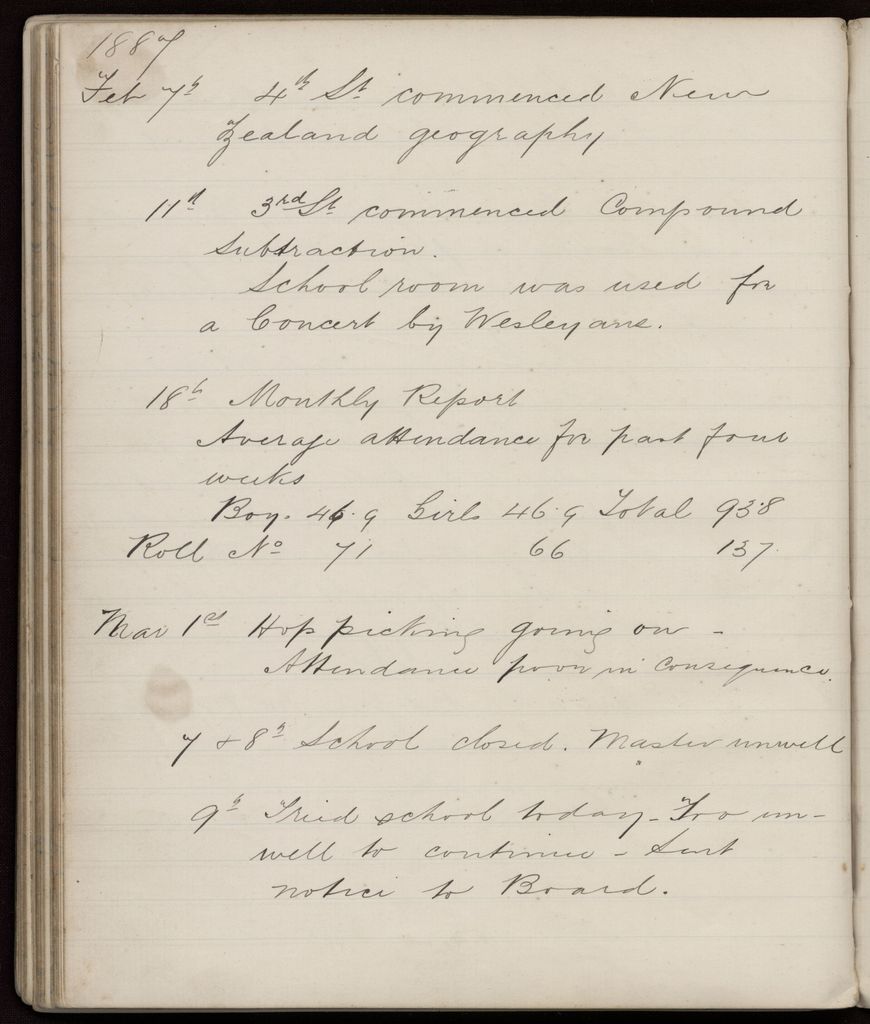 1887
Feb 7th 4th St. commenced New
Zealand geography
11th 3rd St. commenced Compound
Subtraction.
School room was used for
a Concert by Wesleyans.
18th Monthly Report
Average attendance for past four
weeks
Boys 46.9 Girls 46.9 Total 93.8
Roll No 71 66 137
Mar 1st Hop picking going on -
Attendance poor in consequence.
7 & 8th School closed. Master unwell
9th Tried school today - Too un-
well to continue - Sent
notice to Board.